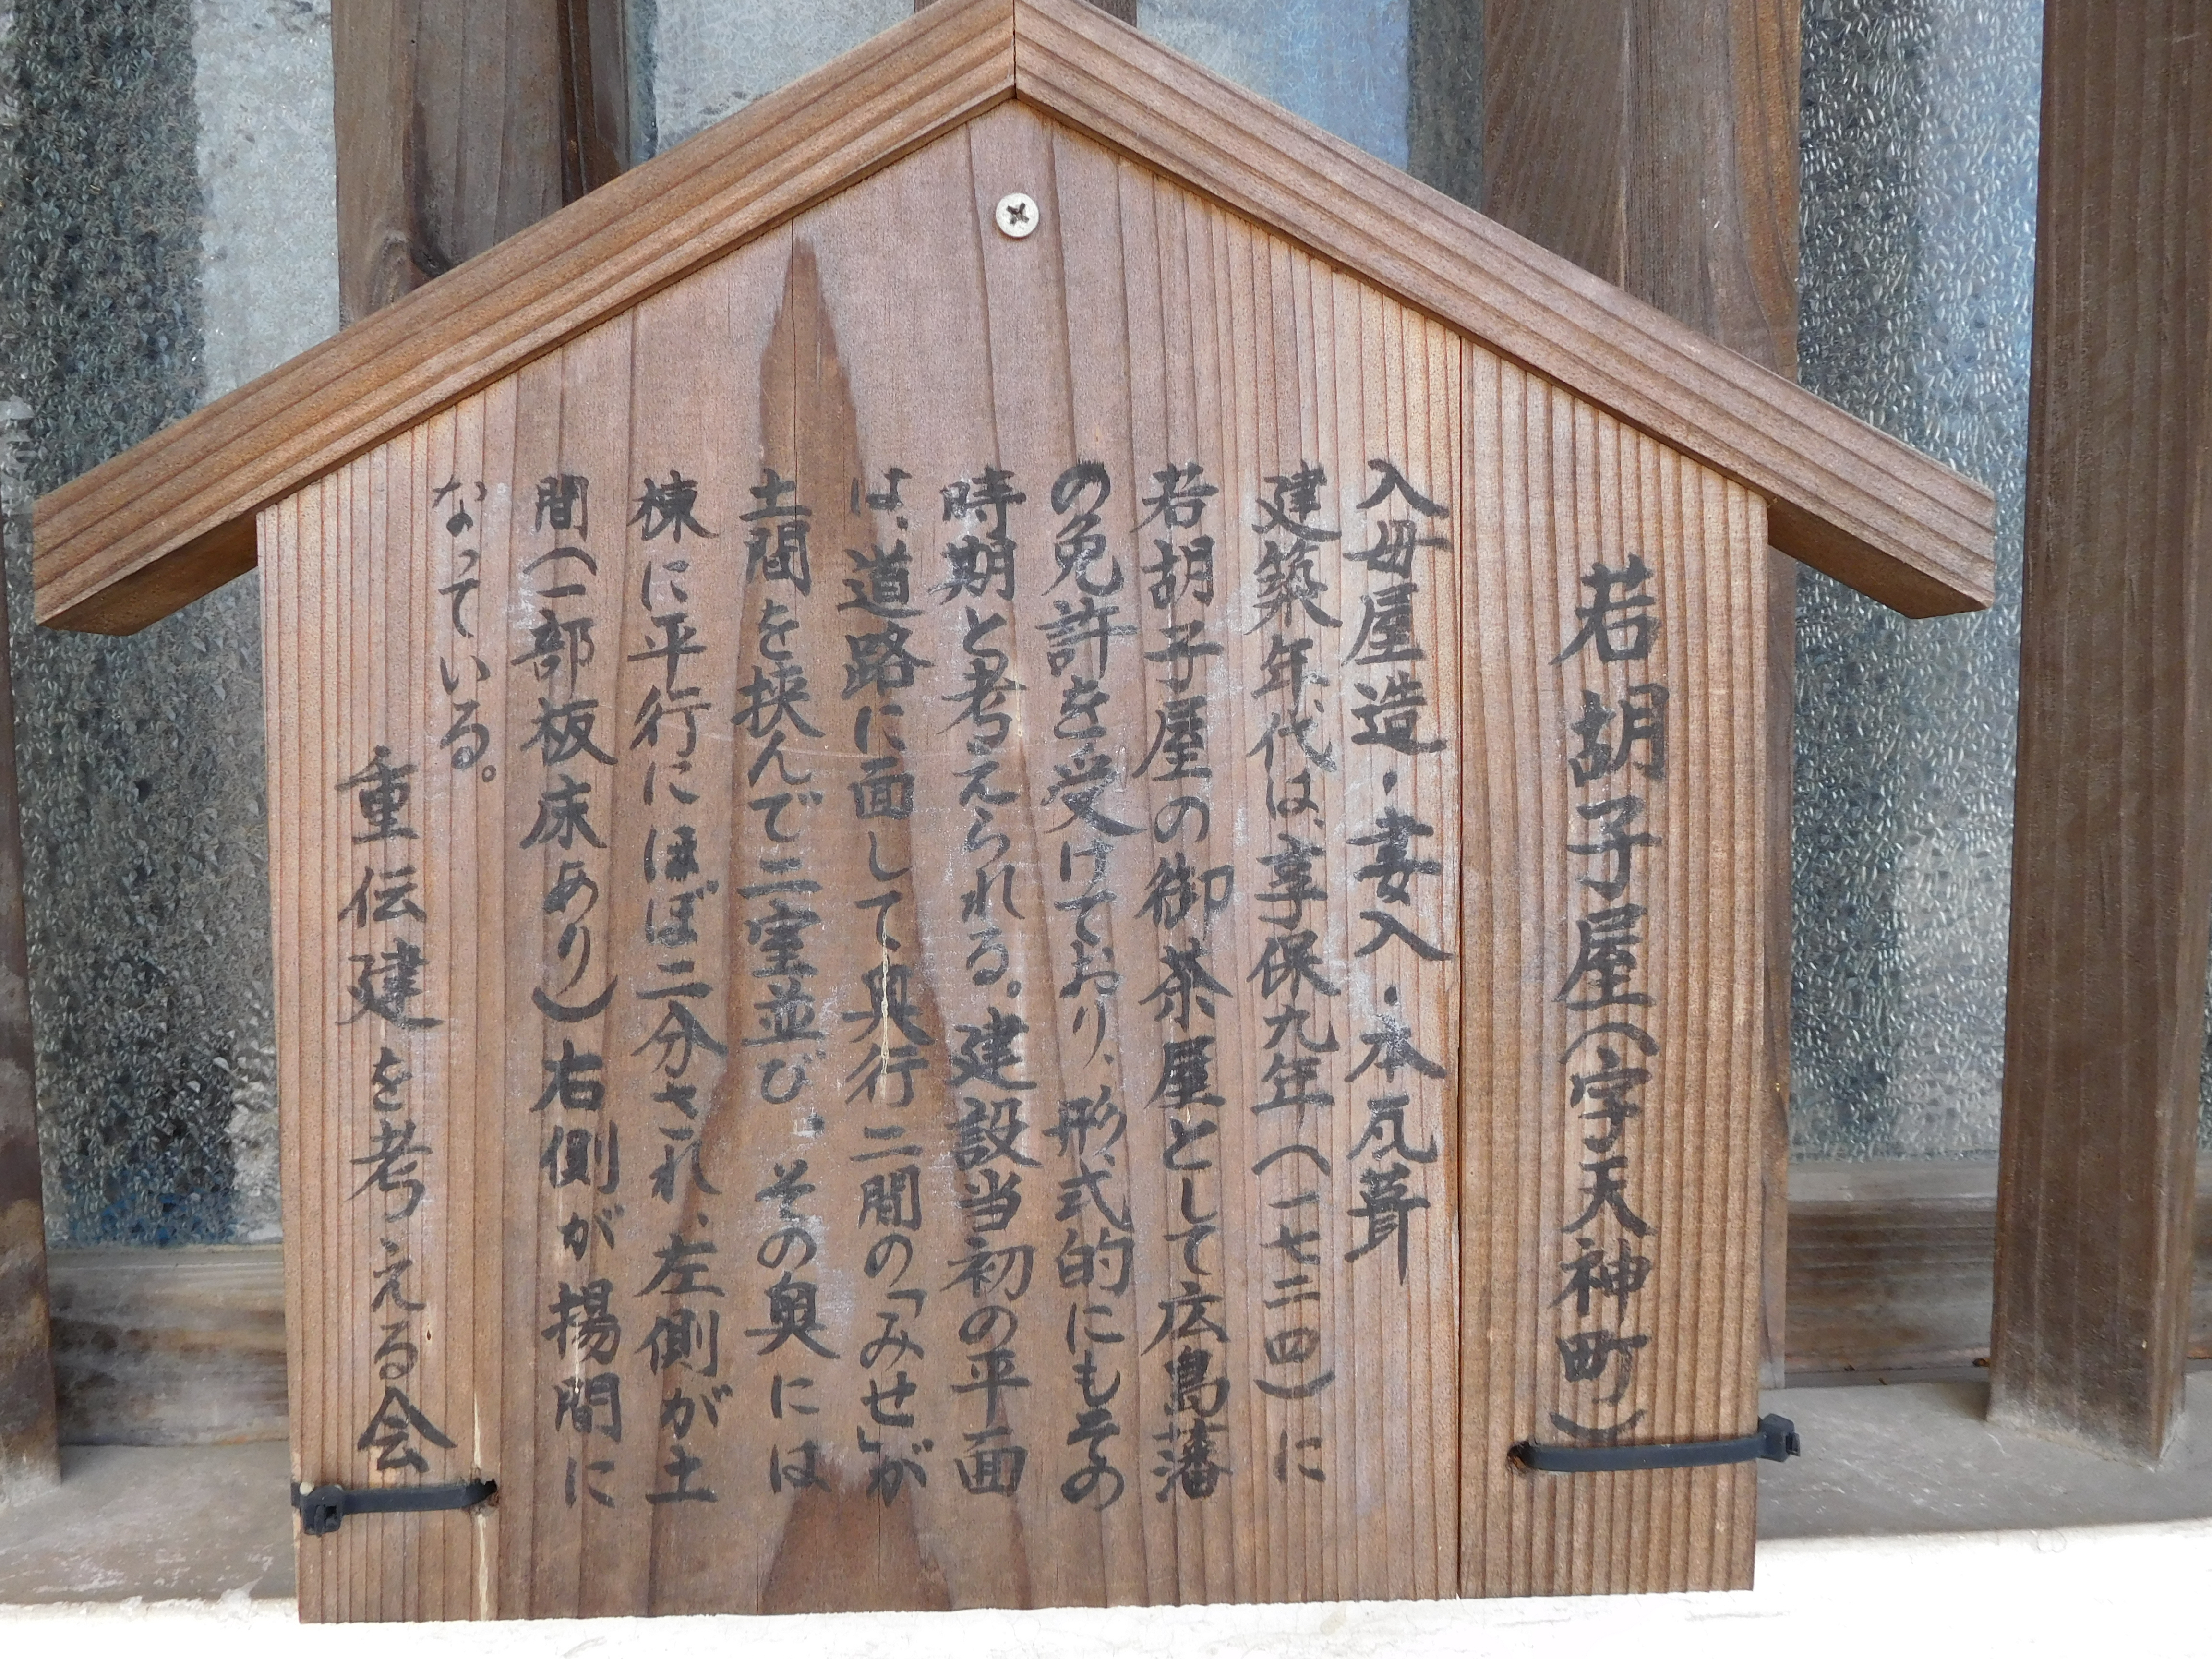 若胡子屋(字天神町)
入母屋造・妻入・本瓦葺
建築年代は、享保九年(一七二四)に
若胡子屋の御茶屋として広島藩
の免許を受けており、形式的にもその
時期と考えられる。建設当初の平面
は、道路に面して、奥行二間の「みせ」が
土間を挟んで二室並び、その奥には
棟に平行にほぼ二分され、左側が土
間(一部板床あり)右側が揚間に
なっている。
重伝建を考える会